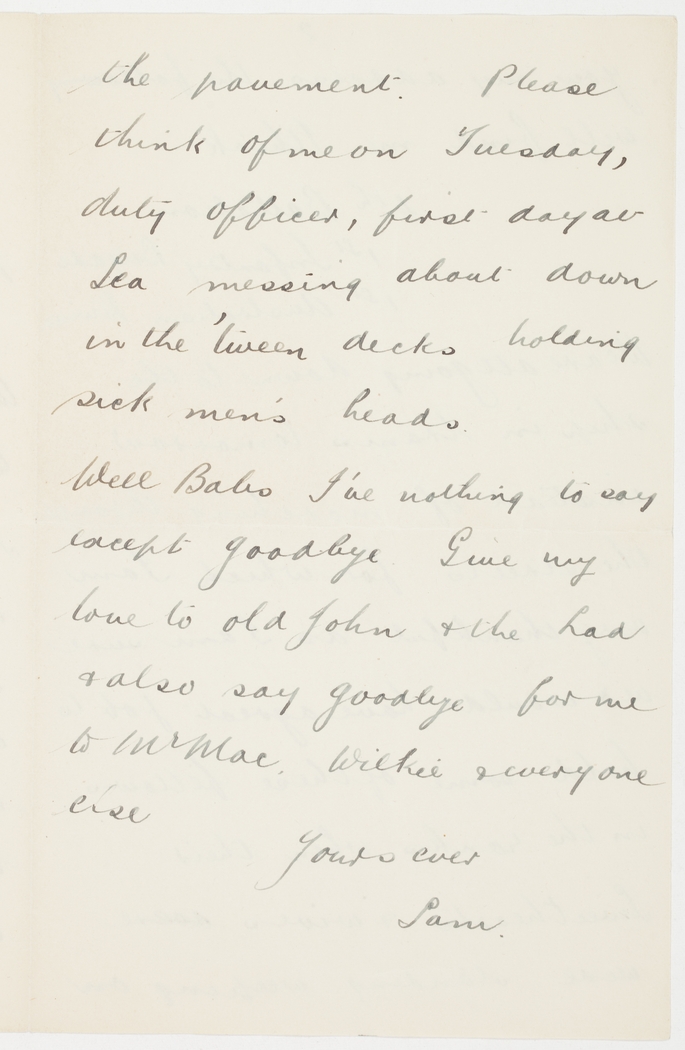 the pavement. Please
think of me on Tuesday,
duty officer, first day at
Sea messing about down
in the 'tween decks holding
sick men's heads.
Well Babs I've nothing to say
except goodbye Give my
love to old John & the Lad
& also say goodbye for me
to Mr Mac, Wilkie & everyone
else
Yours ever
Sam.